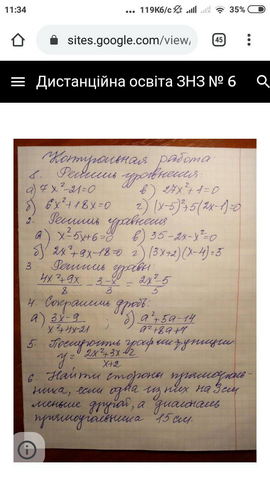 11:34
119КБ/с
35%
sites.google.com/view/
45
Дистанційна освіта ЗНЗ № 6
Контрольная работа
1. Решишь уравнения
а) 7x²-21=0 в) 27x²+1=0
б) 6x²+18x=0 г) (x-5)²+5(2x-1)=0
2. Решишь уравнения
а) x²-5x+6=0 в) 35-2x-x²=0
б) 2x²+9x-18=0 г) (3x+2)(x-4)=5
3. Решишь уравн:
4x²+9x/8 - 3-x/5 = 2x²-5/5
4. Сократишь дробь:
а) 3x-9/x²+4x-21 б) a²+5a-14/a²+8a+7
5. Построить график функции
y= 2x²+3x-2/x+2
6. Найти стороны прямоуголь-
ника, если одна из них на 3см
меньше другой, а диагональ
прямоугольника 15см.